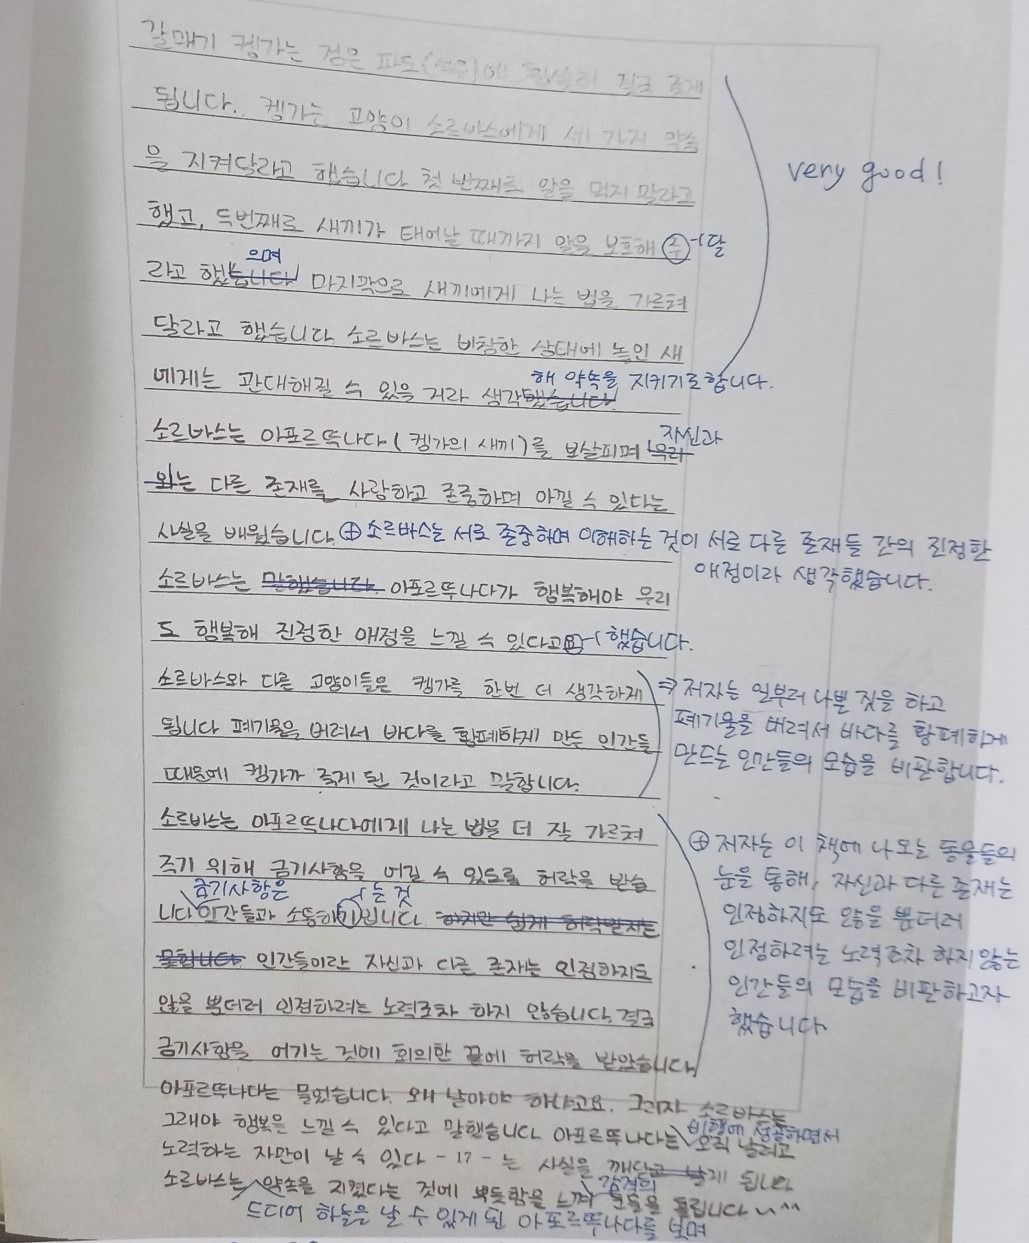 갈매기 켕가는 검은 파도(석유)에 휩쓸려 결국 죽게
very good!
됩니다.. 켕가는 고양이 소르바스에게 세 가지 약속
을 지켜달라고 했습니다 첫 번째로 알을 먹지 말라고
했고, 두번째로 새끼가 태어날 때까지 알을 보호해 주 달
으며
라고 했습니다 마지막으로 새끼에게 나는 법을 가르쳐
달라고 했습니다 소르바스는 비참한 상태에 놓인 새
해 약속을 지키기로 합니다.
에게는 관대해질 수 있을 거라 생각했습니다.
자신과
소르바스는 아포르뚝나다(켕가의 새끼)를 보살피며 우리
와는 다른 존재를 사랑하고 존중하며 아낄 수 있다는
사실을 배웠습니다. ⊕ 소르바스는 서로 존중하며 이해하는 것이 서로 다른 존재들 간의 진정한
애정이라 생각했습니다.
소르바스는 말했습니다. 아포르뚜나다가 행복해야 우리
도 행복해 진정한 애정을 느낄 수 있다고요 했습니다.
소르바스와 다른 고양이들은 켕가를 한번 더 생각하게
됩니다 폐기물을 버려서 바다를 황폐하게 만든 인간들
때문에 켕가가 죽게 된 것이라고 말합니다.
⇒ 저자는 일부러 나쁜 짓을 하고
폐기물을 버려서 바다를 황폐하게
만드는 인간들의 모습을 비판합니다.
소르바스는 아포르뚝나다에게 나는 법을 더 잘 가르쳐
주기 위해 금기사항을 어길 수 있도록 허락을 받습
금기사항은 는 것
니다 인간들과 소통하기입니다 하지만 쉽게 허락받지는
못합니다 인간들이란 자신과 다른 존재는 인정하지도
않을 뿐더러 인정하려는 노력조차 하지 않습니다. 결국
금기사항을 어기는 것에 회의한 끝에 허락을 받았습니다
⊕ 저자는 이 책에 나오는 동물들의
눈을 통해, 자신과 다른 존재는
인정하지도 않을 뿐더러
인정하려는 노력조차 하지 않는
인간들의 모습을 비판하고자
했습니다
아포르뚜나다는 물었습니다. 왜 날아야 하냐고요. 그러자 소르바스는
그래야 행복을 느낄 수 있다고 말했습니다 아포르뚝나다는 오직 날려고
비행에 성공하면서
노력하는 자만이 날 수 있다 - 17 - 는 사실을 깨닫고 날게 됩니다
감격의
소르바스는 약속을 지켰다는 것에 뿌듯함을 느껴 눈물을 흘립니다 ^^
드디어 하늘을 날 수 있게 된 아포르뚝나다를 보며